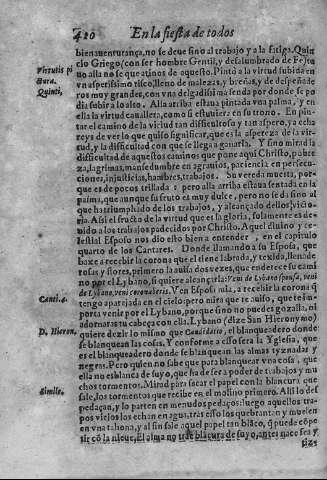 420 En la fiesta de todos
bienauenturança, no se deue sino al trabajo y a la fatiga. Quin
Virtutis pi
ctura.
Quinti,
cio Griego (con ser hombre Gentil, y desalumbrado de Fe) tu
uo alla no se que atinos de aquesto. Pintò a la virtud subida en
vn asperissimo risco, lleno de malezas, y breñas, y de despeñade
ros muy grandes, con vna delgadissima senda por donde se po
dia subir a lo alto. Alla arriba estaua pintada vna palma, y en
ella la virtud cauallera, como si estuuiera en su trono. En pin-
tar el camino de la virtud tan dificultoso y tan aspero, ya echa
reys de ver lo que quiso significar, que es la aspereza de la vir-
tud, y la dificultad con que se llega a ganarla. Y sino mirad la
dificultad de aquestos caminos que pone aqui Christo, pobre
za, lagrimas, mansedumbre en agrauios, paciencia en persecu-
ciones, injusticias, hambres, trabajos. Su vereda muesta, por-
que es de pocos trillada: pero alla arriba estaua sentada en la
palma, que aunque su fruto es muy dulce, pero no se da sino al
que ha triumphado de los trabajos, y alcançado dellos, victo-
ria. Assi el fructo de la virtud que es la gloria, solamente es de-
uido a los trabajos padecidos por Christo. Aquel diuino y ce-
lestial Esposo nos dio esto bien a entender, en el capitulo
quarto de los Cantares. Donde llamando a su Esposa, que
baxe a recebir la corona que el tiene labrada, y texida, llena de
rosas y flores, primero la auisa dos vezes, que enderece su cami
no por el Lybano, si quiere alcançarla: Veni de Lybano sponsa, veni
de Lybano, veni coronaberis. Ven Esposa mia, a recebir la corona q̃
Canti. 4.
tengo aparejada en el cielo: pero mira que te auiso, que te im-
porta venir por el Lybano, porque sino no puedes gozalla, ni
adornaras tu cabeça con ella. Lybano (dize San Hieronymo)
D. Hieron.
quiere dezir lo mismo que Candidatio, el blanqueadero donde
se blanquean las cosas. Y conforme a esso sera la Yglesia, que
es el blanqueadero donde se blanquean las almas tyznadas y
negras. Pero quien no sabe que para blanquear vna cosa, que
ella no es blanca de suyo, que ha de ser a poder de trabajos y mu
chos tormentos. Mirad para sacar el papel con la blancura que
Simile.
sale, los tormentos que recibe en el molino primero. Alli lo des
pedaçan, y lo parten en menudos pedaços: luego aquellos tra-
pos viejos los echan en agua, tras esso los quebrantan y muelen
en vna tahona, y al fin sale aquel papel tan blãco, q̃ puede cõpe
tir cõ la nieue. El alma no trae blãcura de suyo, antes nace fea y